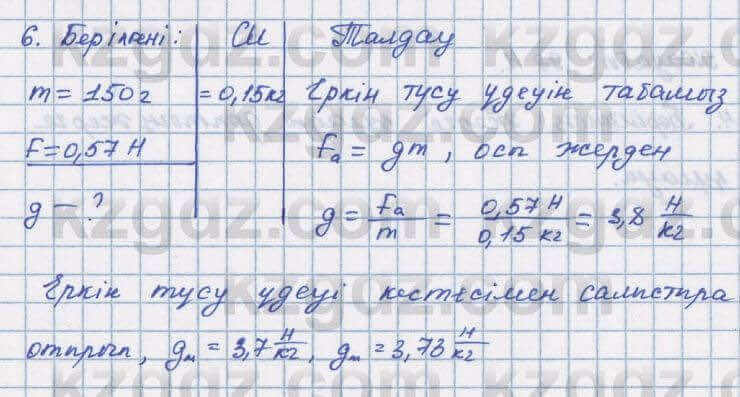 6. Берілгені: СИ Талдау
m = 150 г = 0,15 кг Еркін түсу үдеуін табамыз
F = 0,57 Н Fₐ = gm, осы жерден
g — ? g = Fₐ/m = 0,57 Н / 0,15 кг = 3,8 Н/кг
Еркін түсу үдеуі кестесімен салыстыра
отырып, gₘ = 3,7 Н/кг, gₘ = 3,73 Н/кг
kzgdz.com